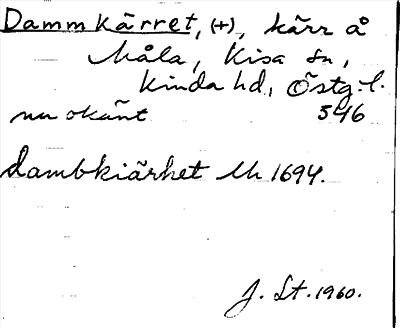 Dammkärret, (+), kärr å
Måla, Kisa sn,
Kinda hd, Östg. l.
nu okänt 546
dambkiärhet Lh 1694.
J. St. 1960.